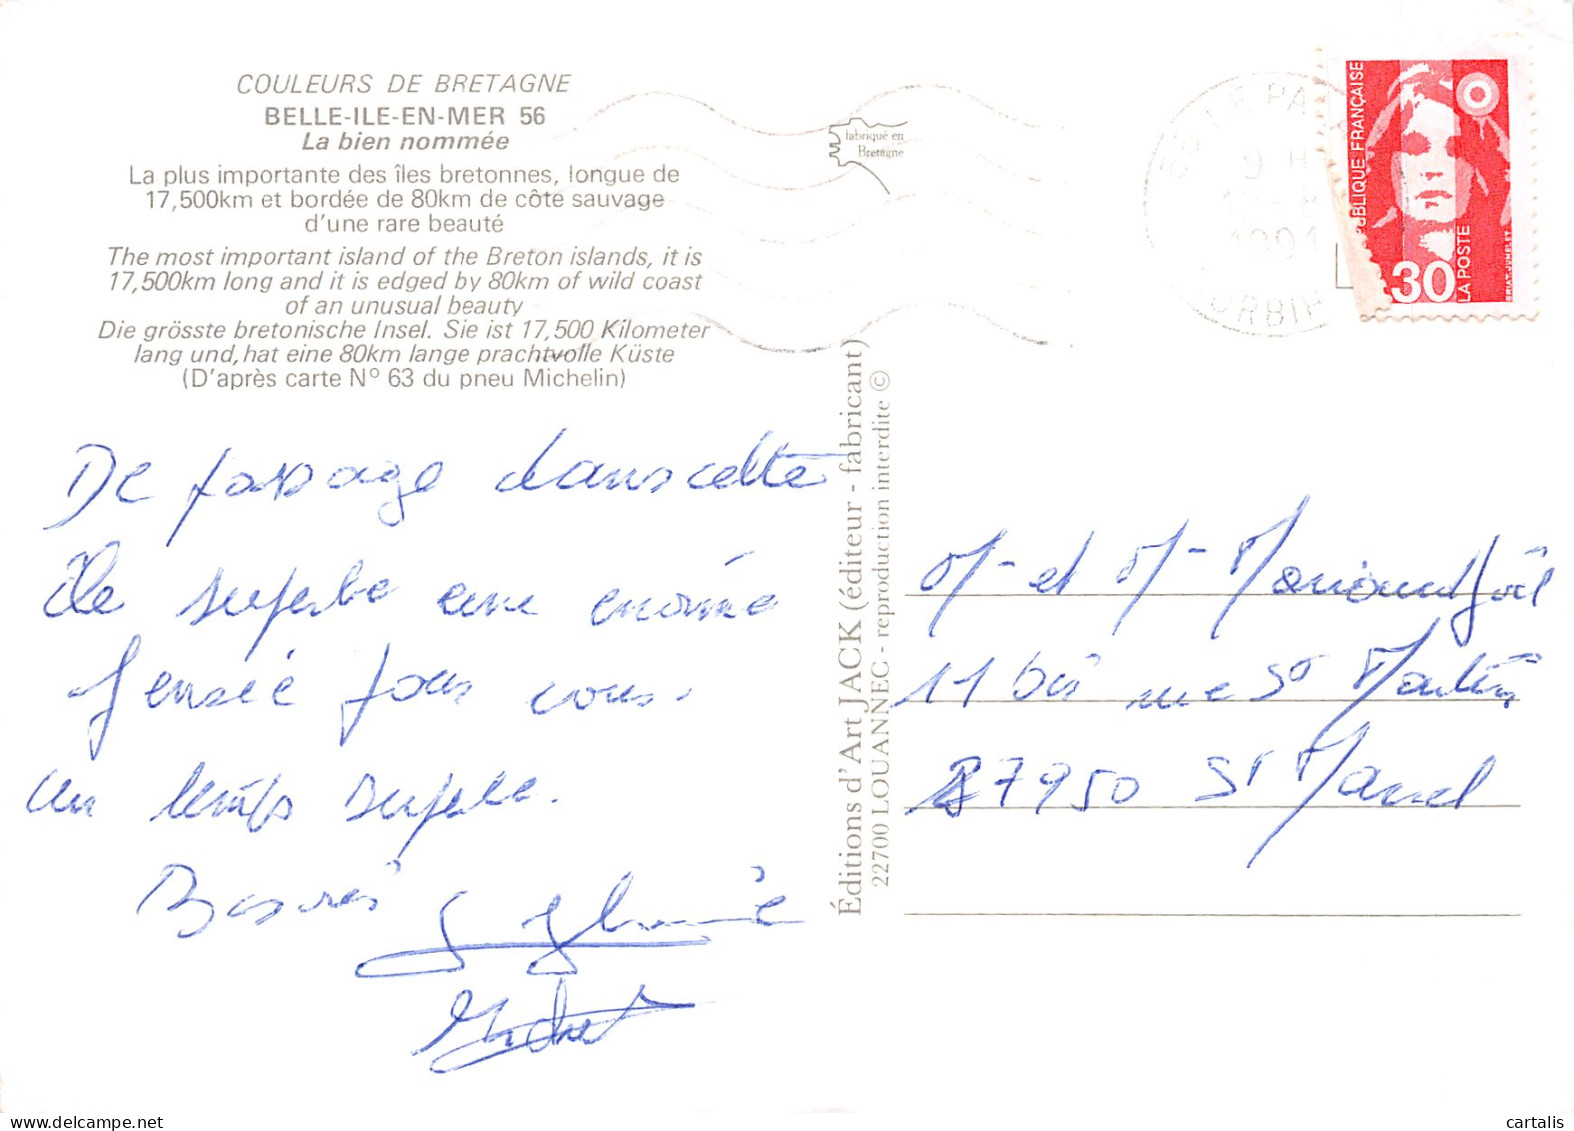 COULEURS DE BRETAGNE
BELLE-ILE-EN-MER 56
La bien nommée
La plus importante des îles bretonnes, longue de
17,500km et bordée de 80km de côte sauvage
d'une rare beauté
The most important island of the Breton islands, it is
17,500km long and it is edged by 80km of wild coast
of an unusual beauty
Die grösste bretonische Insel. Sie ist 17,500 Kilometer
lang und, hat eine 80km lange prachtvolle Küste
(D'après carte N° 63 du pneu Michelin)
fabriqué en
Bretagne
56 LE PA
9 H
1991
ORBIH
RÉPUBLIQUE FRANÇAISE
30
LA POSTE
De passage dans cette
île superbe une énorme
pensée pour vous.
un temps superbe.
Bisous
Éditions d'Art JACK (éditeur - fabricant)
22700 LOUANNEC - reproduction interdite ©
M- et M-
11 bis rue St Martin
27950 St Marcel
delcampe.net
cartalis